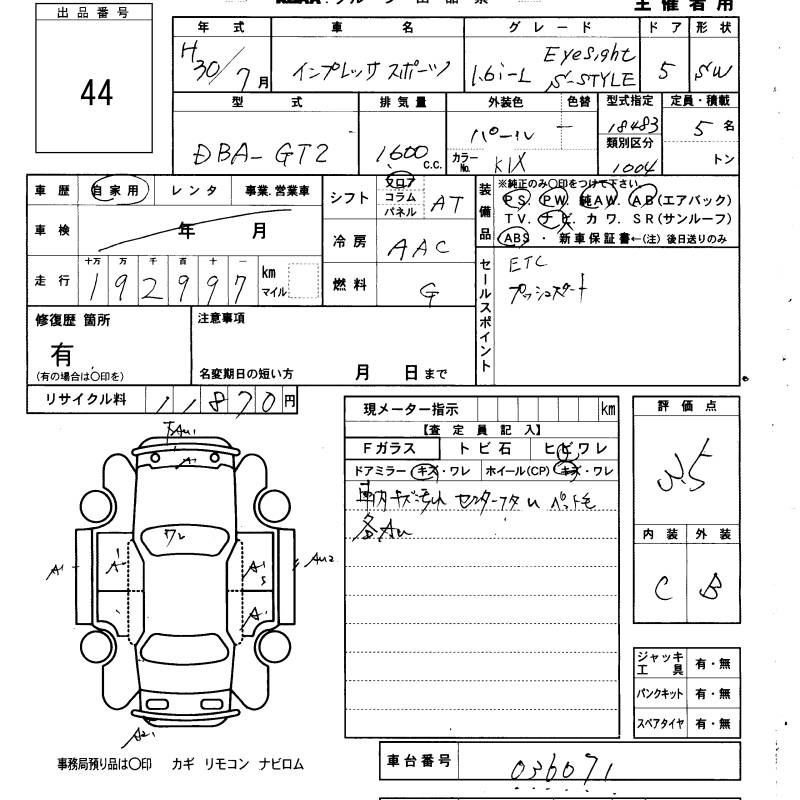 主催者用
出品番号
44
年式 車名 グレード ドア 形状
H30/7月 インプレッサスポーツ 1.6i-L EyeSight S-STYLE 5 SW
型式 排気量 外装色 色替 型式指定 定員・積載
DBA-GT2 1,600 c.c. パール ー 18483 5名
カラーNo. K1X 類別区分 1004 トン
車歴 自家用 レンタ 事業.営業車
シフト フロア コラム パネル AT
装備品 ※純正のみ〇印をつけて下さい
PS. PW. 純AW. AB(エアバック)
TV. ナビ. カワ. SR(サンルーフ)
ABS ・ 新車保証書←(注) 後日送りのみ
車検 年 月
冷房 AAC
走行 十万 万 千 百 十 一 km マイル
192997
燃料 G
セールスポイント ETC
プッシュスタート
修復歴 箇所
有
(有の場合は〇印を)
注意事項
名変期日の短い方 月 日まで
リサイクル料 11870円
現メーター指示 km
【査定員記入】
Fガラス トビ石 ヒビワレ
ドアミラー キズ・ワレ ホイール(CP) キズ・ワレ
車内キズ汚れ
各AU
評価点
3.5
内装 外装
C B
AU1
A
ワレ
A1
A1
A1
S
A1
AU2
A21
ジャッキ工具 有・無
パンクキット 有・無
スペアタイヤ 有・無
事務局預り品は〇印 カギ リモコン ナビロム
車台番号 036071